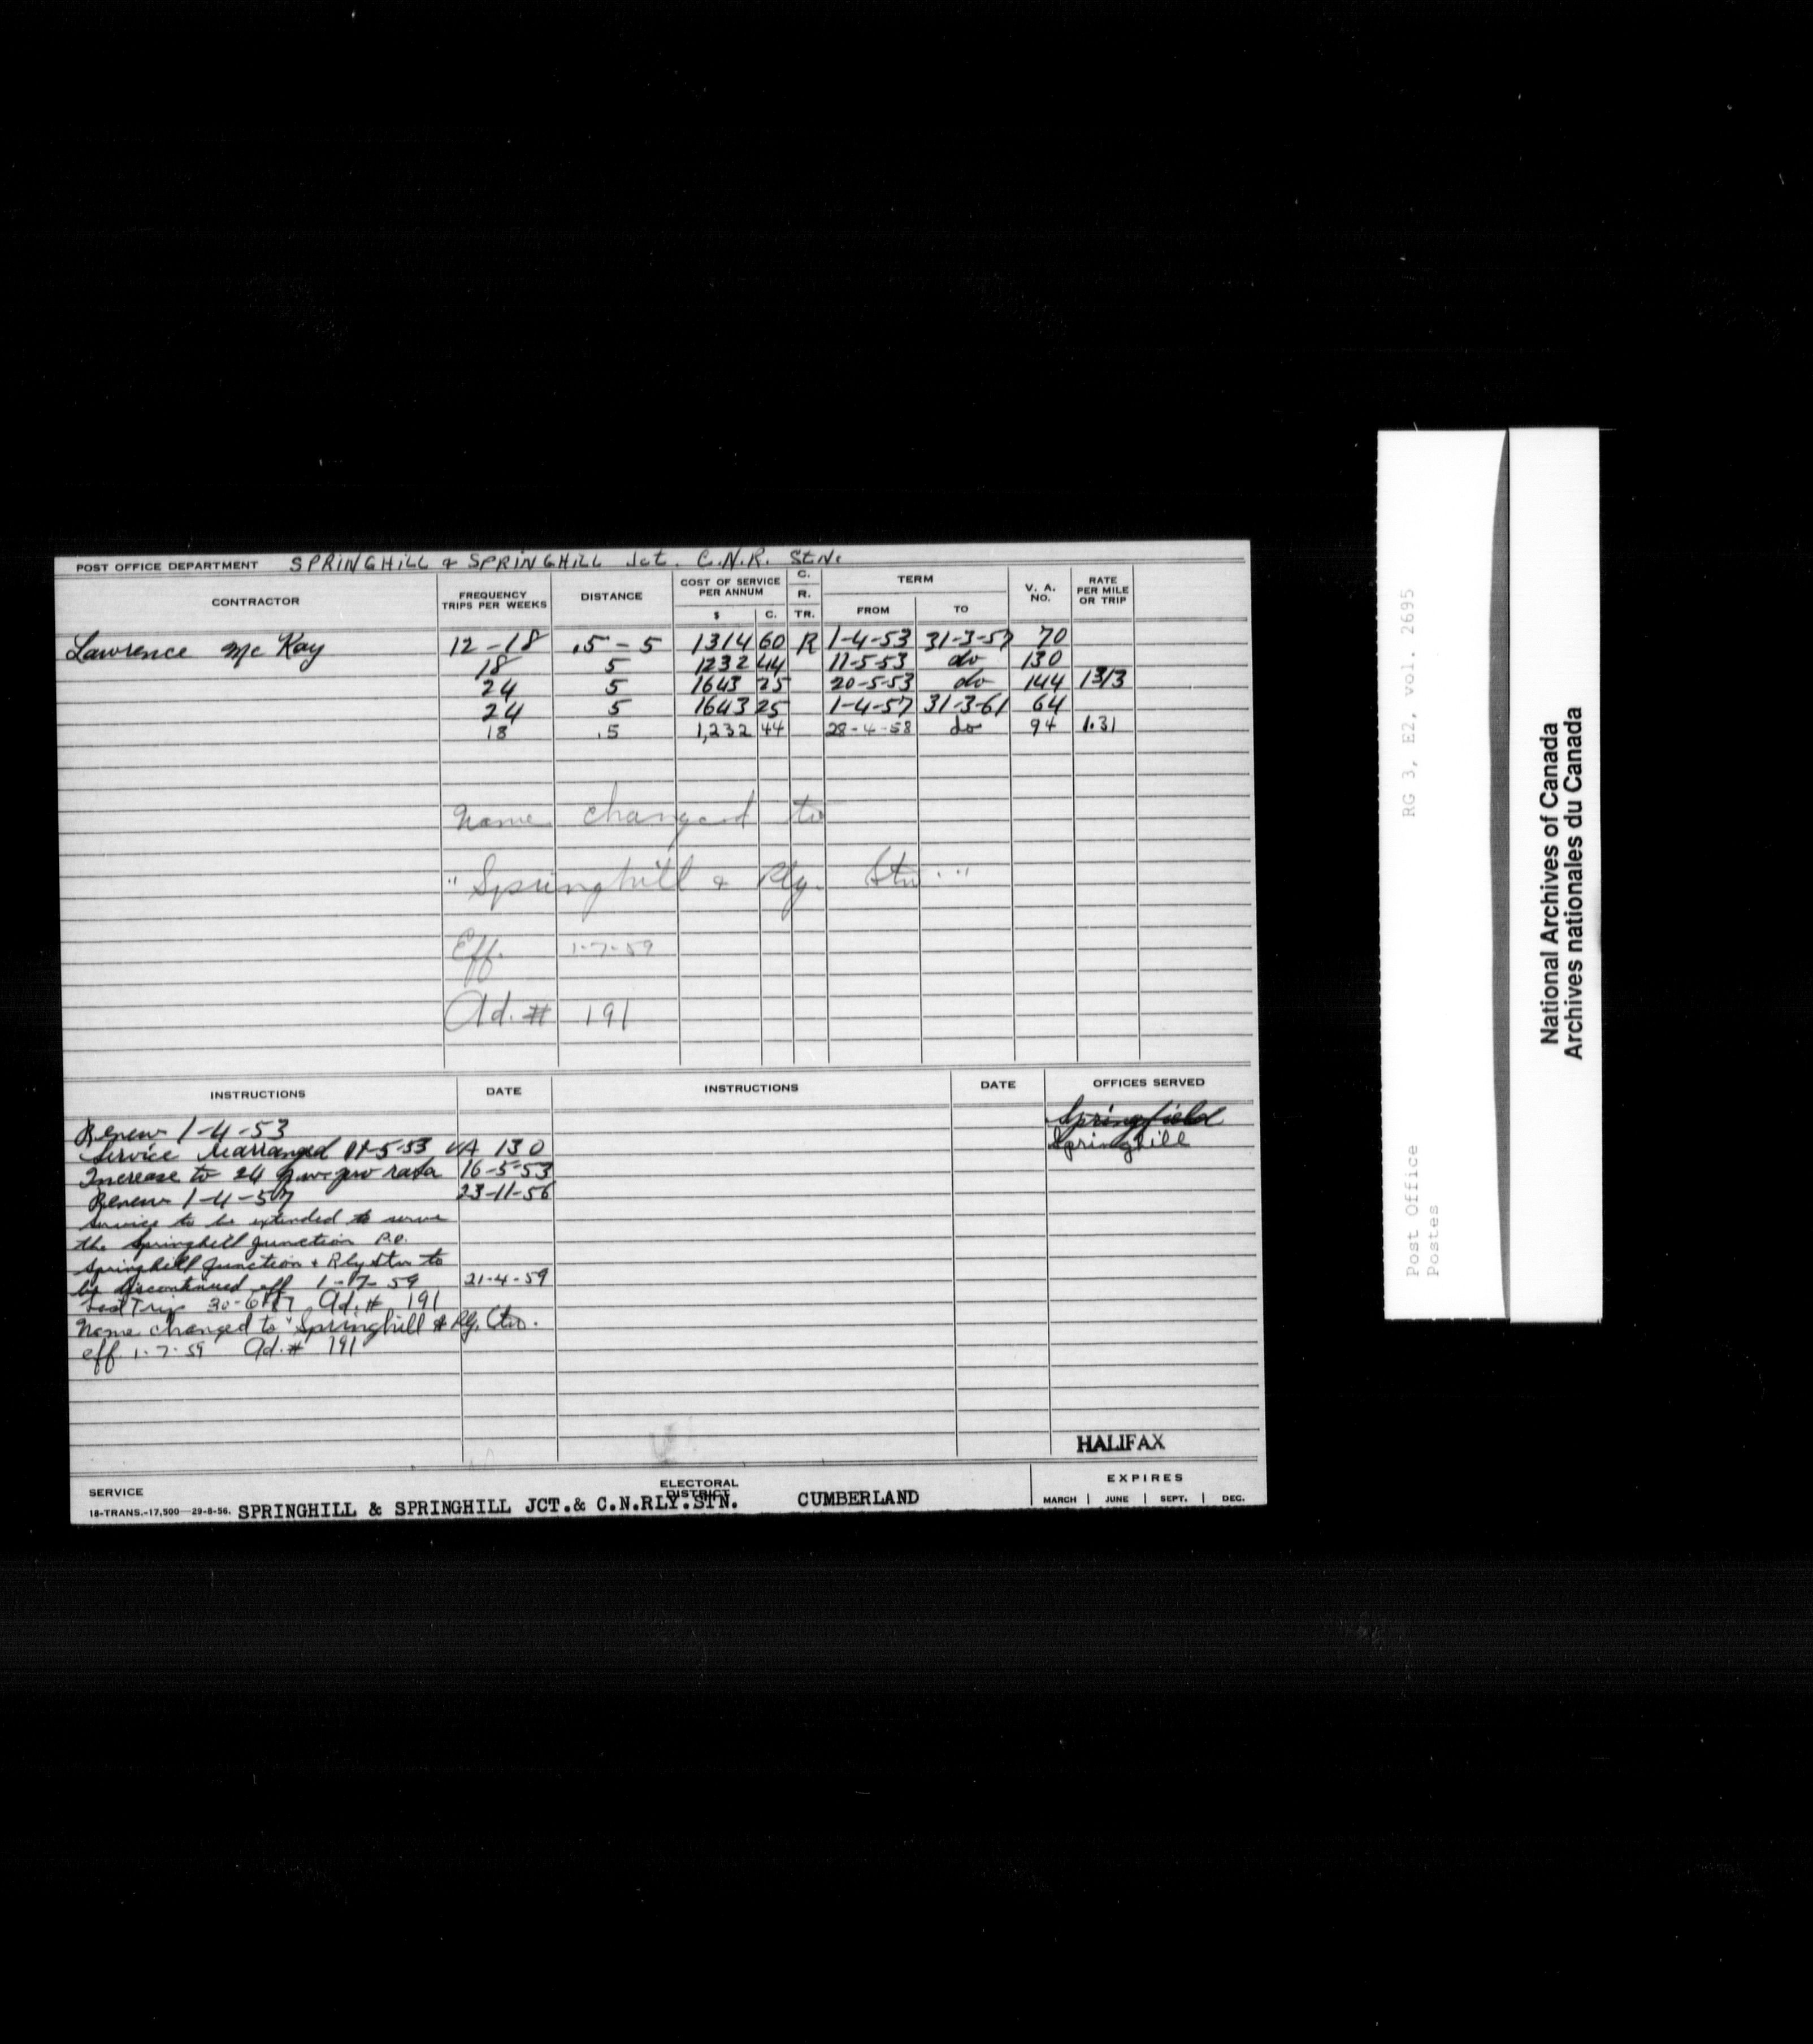 POST OFFICE DEPARTMENT SPRINGHILL & SPRINGHILL Jct. C.N.R. StN.
CONTRACTOR FREQUENCY TRIPS PER WEEKS DISTANCE COST OF SERVICE PER ANNUM $ C. C. R. TR. TERM FROM TO V. A. NO. RATE PER MILE OR TRIP
Lawrence McKay 12-18 .5-5 1314 60 R 1-4-53 31-3-57 70
18 5 1232 44 11-5-53 do 130
24 5 1643 25 20-5-53 do 144 13/3
24 5 1643 25 1-4-57 31-3-61 64
18 .5 1,232 44 28-4-58 do 94 1.31
Name changed to
"Springhill & Rly. Stn."
Eff. 1-7-59
Ad. # 191
INSTRUCTIONS DATE INSTRUCTIONS DATE OFFICES SERVED
Renew 1-4-53 Springfield
Service rearranged 11-5-53 VA 130 Springhill
Increase to 24 p.w. pro rata 16-5-53
Renew 1-4-57 23-11-56
Service to be extended to serve
the Springhill Junction P.O.
Springhill Junction & Rly Stn to
be discontinued eff 1-7-59 21-4-59
Last Trip Ad. # 191
Name changed to "Springhill & Rly. Stn.
eff. 1-7-59 Ad. # 191
HALIFAX
SERVICE ELECTORAL DISTRICT EXPIRES
18-TRANS.-17,500-29-8-56. SPRINGHILL & SPRINGHILL JCT.& C.N.RLY.STN. CUMBERLAND MARCH | JUNE | SEPT. | DEC.
RG 3, E2, vol. 2695
Post Office
Postes
National Archives of Canada
Archives nationales du Canada